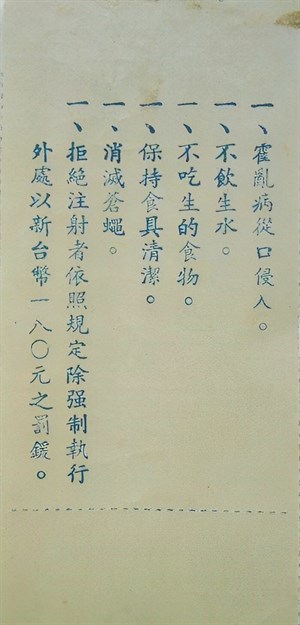 一、霍亂病從口侵入。
一、不飲生水。
一、不吃生的食物。
一、保持食具清潔。
一、消滅蒼蠅。
一、拒絕注射者依照規定除强制執行
外處以新台幣一八〇元之罰鍰。